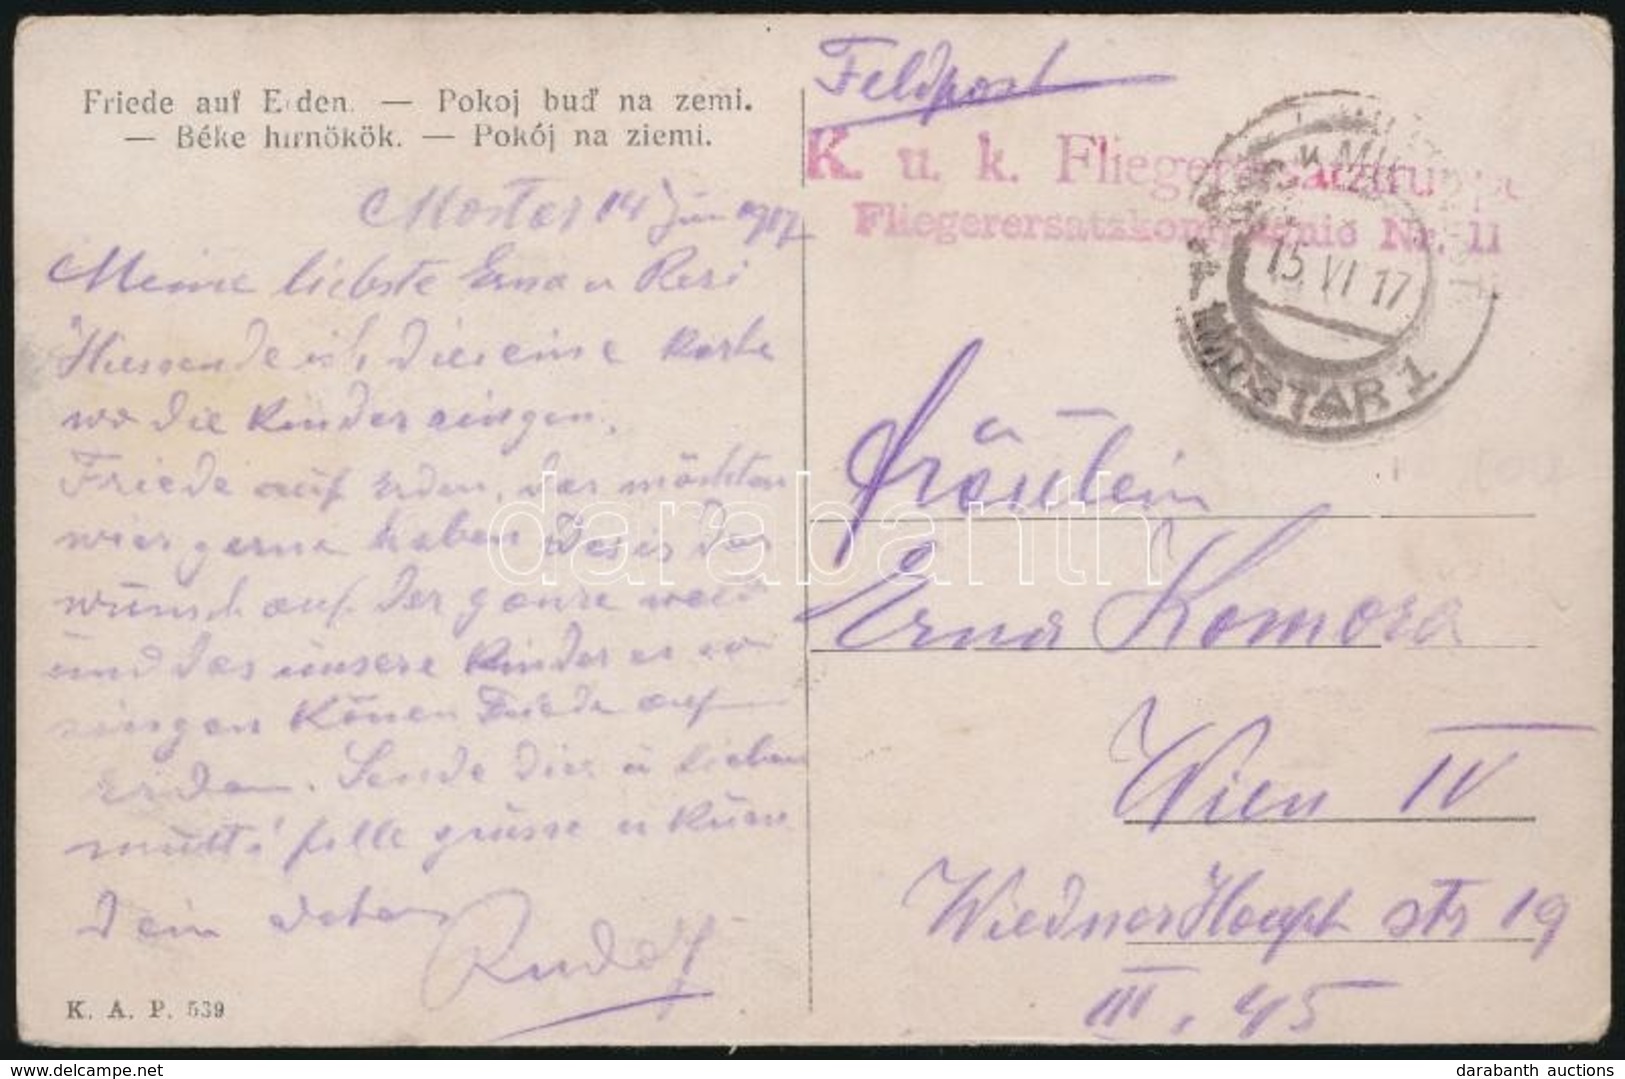 Friede auf Erden. — Pokoj buď na zemi.
— Béke hirnökök. — Pokój na ziemi.
Mostar 14 Juni 1917
Meine liebste Erna u Resi
Hiesende ich dier eine Karte
wo die Kinder singen.
Friede auf Erden, das möchten
wier gerne haben Das is der
wunsch auf der ganze welt
und das unsere Kinder es so
singen Könen Friede auf
Erden. Sende dier u lieben
mutti fille grüsse u Küsse
Dein
Rudolf
K. A. P. 539
Feldpost
K. u. k. Fliegerersatztruppe
Fliegerersatzkompanie Nr. 11
15. VI 17
MOSTAR 1
Fräulein
Erna Komora
Wien IV
Wiedner Haupt str 19
III, 45
darabanth
hip-hop-stamps.delcampe.net
darabanth auctions